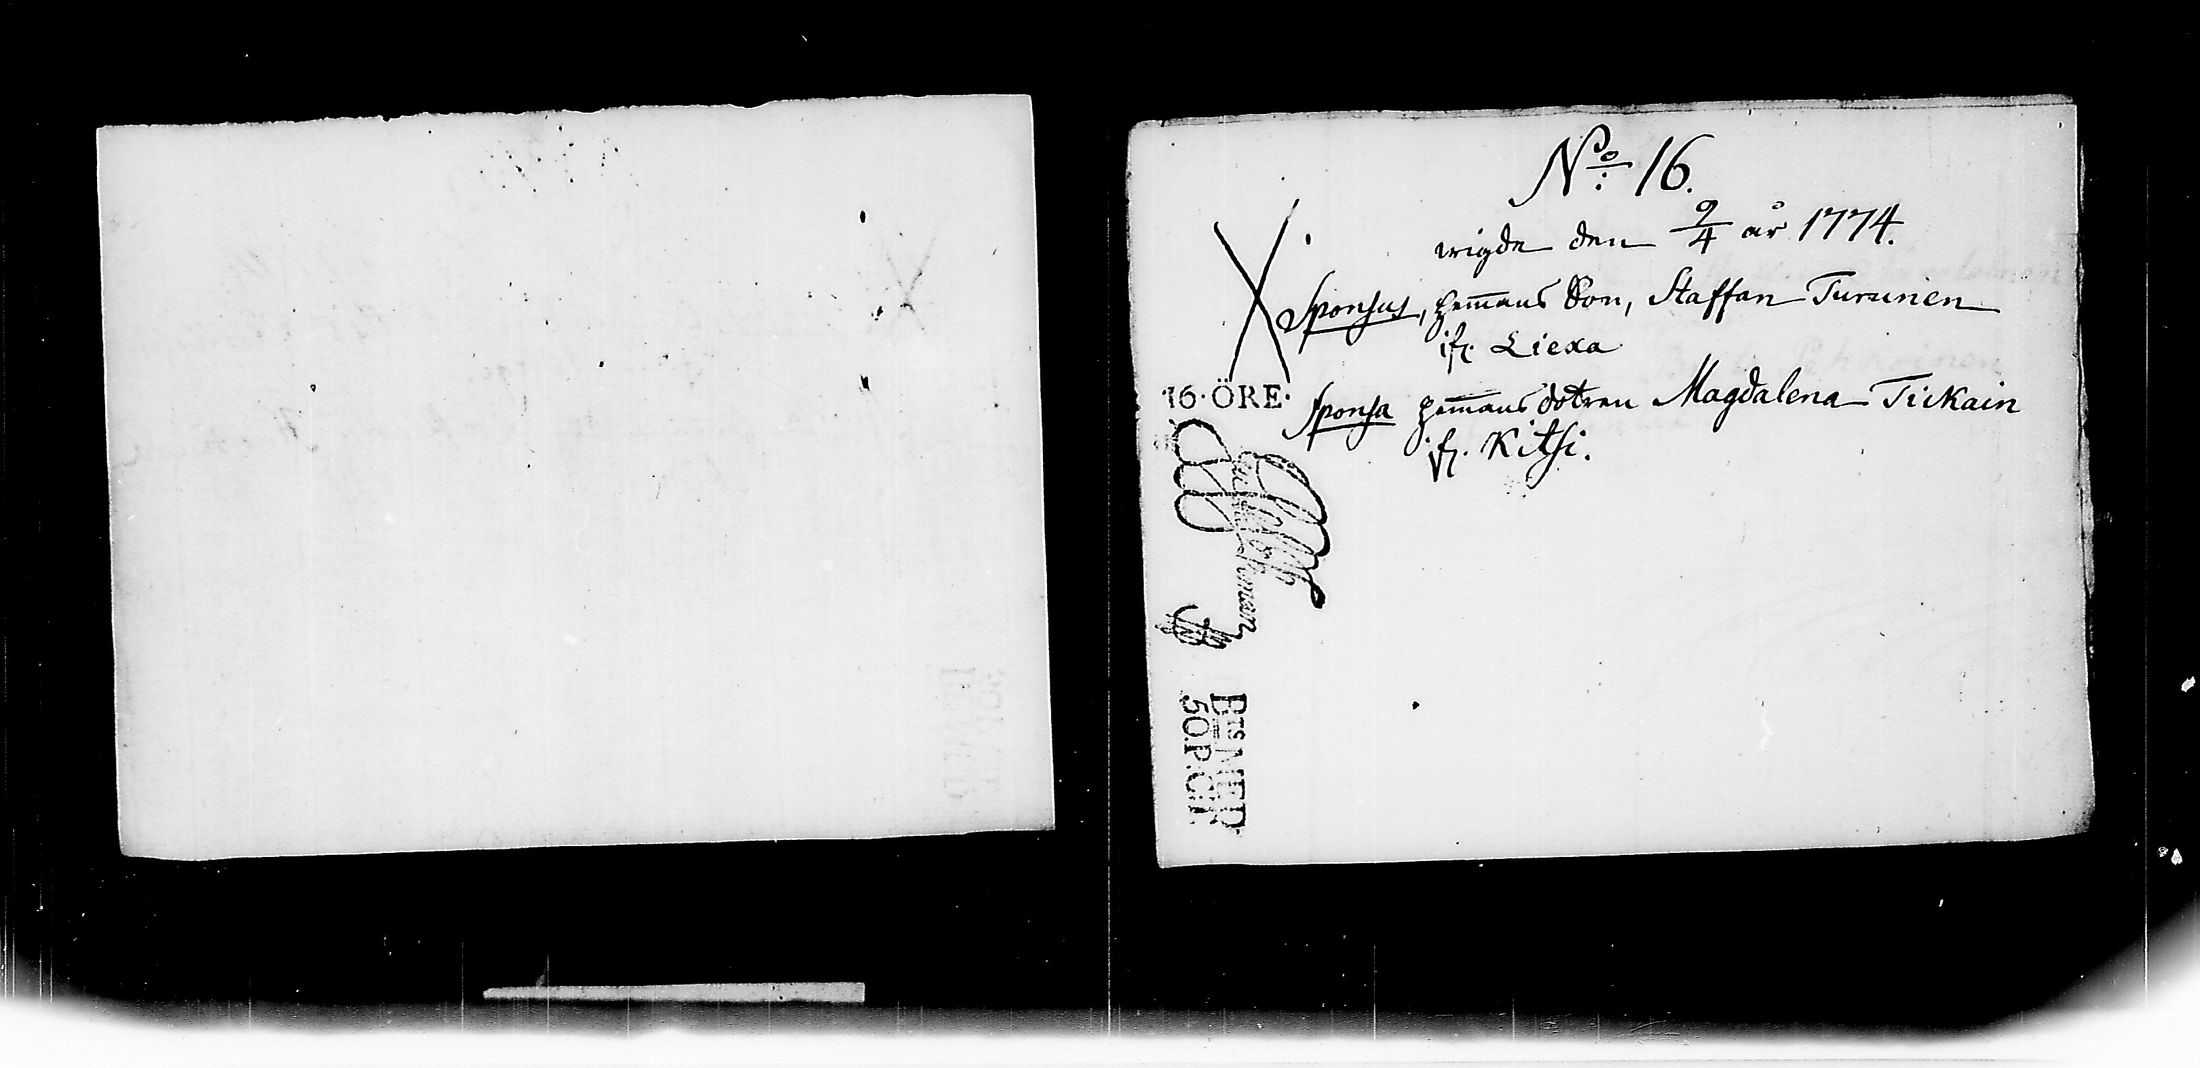 No: 16.
wigde den 9/4 år 1774.
Sponsus, hem̄ans Son, Staffan Turunen
ifr. Liexa
16·ÖRE·
Sponsa hem̄ans dotren Magdalena Tickain
ifr. Kitsi.
BTS MED
50.P.CT.